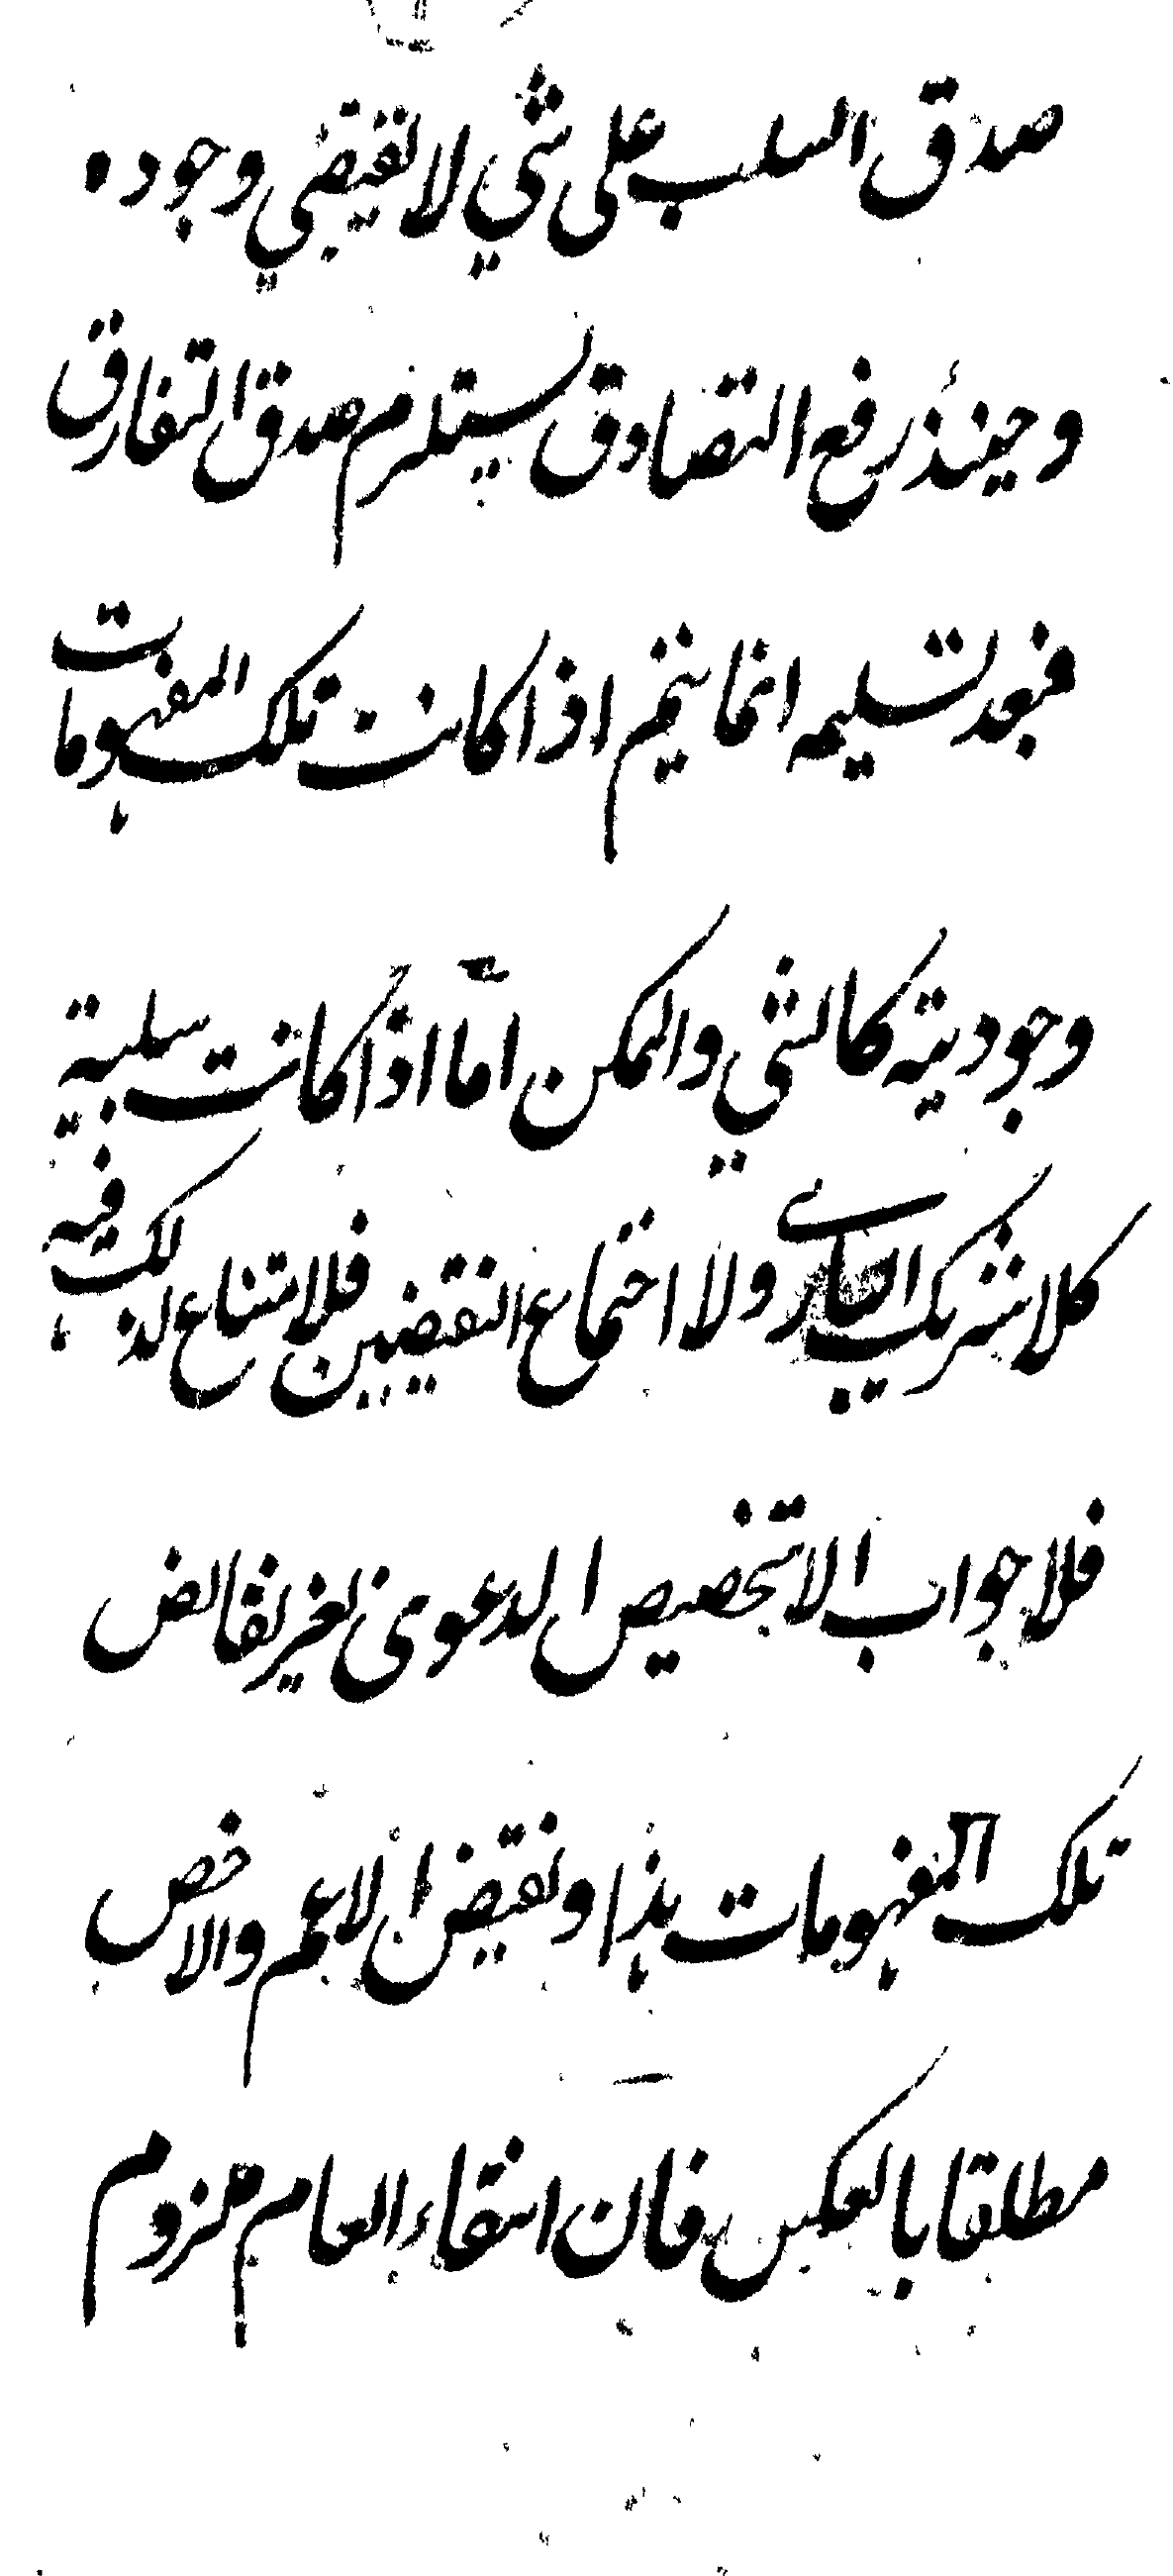 صدق السلب على شي لا يقتضي وجوده
وحينئذ رفع التصادق يستلزم صدق التفارق
فبعد تسليمه انما يتم اذا كانت تلك المفهومات
وجودية كالشي والممكن اما اذا كانت سلبية
كلا شريك الباري ولا اجتماع النقيضين فلا امتناع لذلك فيه
فلا جواب الا بتخصيص الدعوى بغير نقائض
تلك المفهومات هذا ونقيض الاعم والاخص
مطلقا بالعكس فان انتفاء العام ملزوم